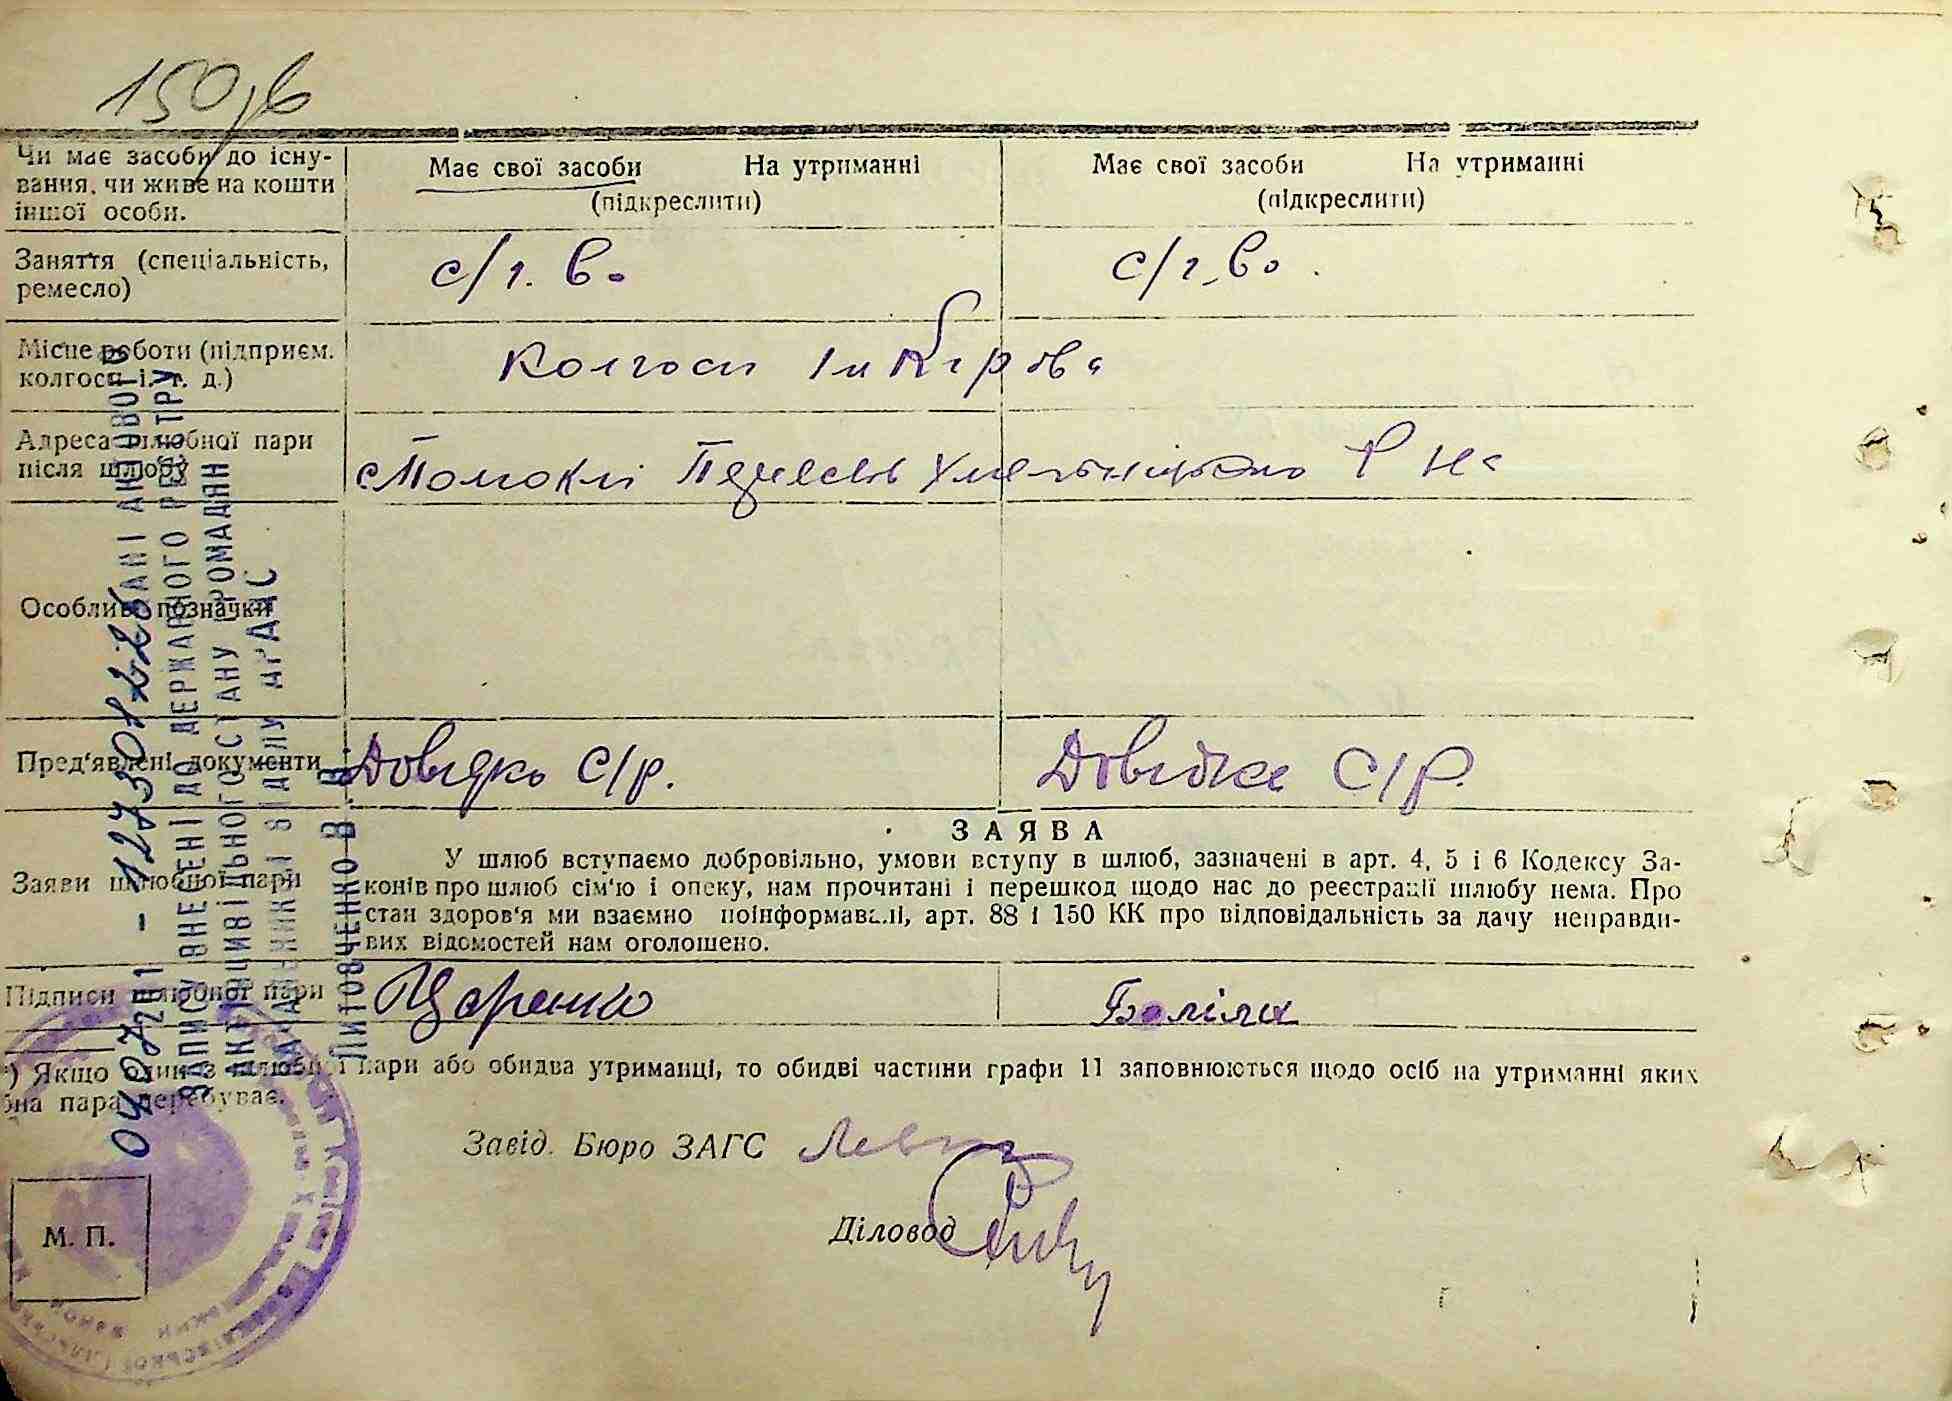 150
Чи має засоби до існу-
вання, чи живе на кошти
іншої особи.
Має свої засоби На утриманні
(підкреслити)
Має свої засоби На утриманні
(підкреслити)
Заняття (спеціальність,
ремесло)
с/г. во
с/г. во.
Місце роботи (підприєм.
колгосп і. т. д.)
Колгосп ім Кірова
Адреса шлюбної пари
після шлюбу
Хмельницького Р на
Особливі позначки
Пред'явлені документи
Довідка С/р.
Довідка С/р.
Заяви шлюбної пари
ЗАЯВА
У шлюб вступаємо добровільно, умови вступу в шлюб, зазначені в арт. 4, 5 і 6 Кодексу За-
конів про шлюб сім'ю і опеку, нам прочитані і перешкод щодо нас до реєстрації шлюбу нема. Про
стан здоров'я ми взаємно поінформавалі, арт. 88 і 150 КК про відповідальність за дачу неправди-
вих відомостей нам оголошено.
Підписи шлюбної пари
Царенко
*) Якщо один з шлюбної пари або обидва утриманці, то обидві частини графи 11 заповнюються щодо осіб на утриманні яких
пара перебуває.
Завід. Бюро ЗАГС
Діловод
М. П.
ДАНІ АКТОВОГО
ЗАПИСУ ВНЕСЕНІ ДО ДЕРЖАВНОГО РЕЄСТРУ
АКТІВ ЦИВІЛЬНОГО СТАНУ ГРОМАДЯН
НАЧАЛЬНИК ВІДДІЛУ ДРАЦС
ЛИТОВЧЕНКО В. В.